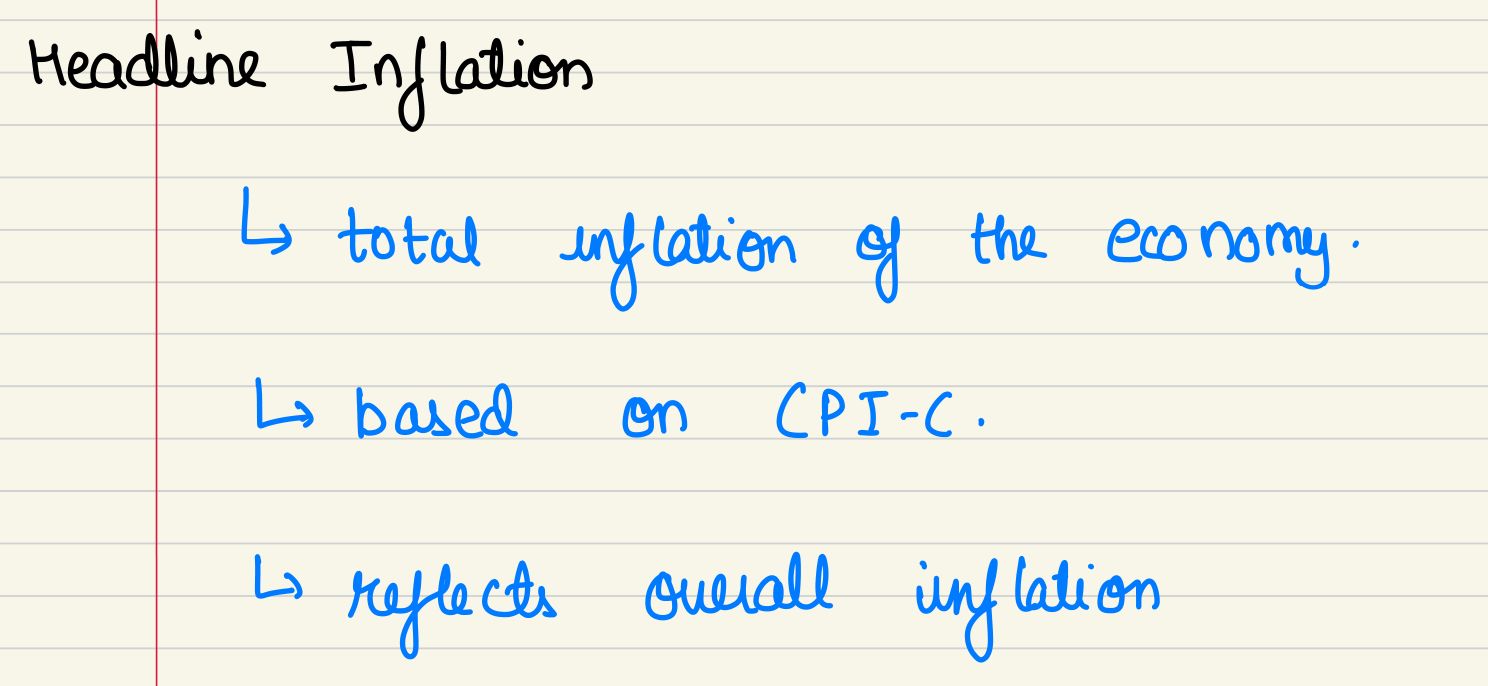 Headline Inflation
↳ total inflation of the economy.
↳ based on CPI-C.
↳ reflects overall inflation